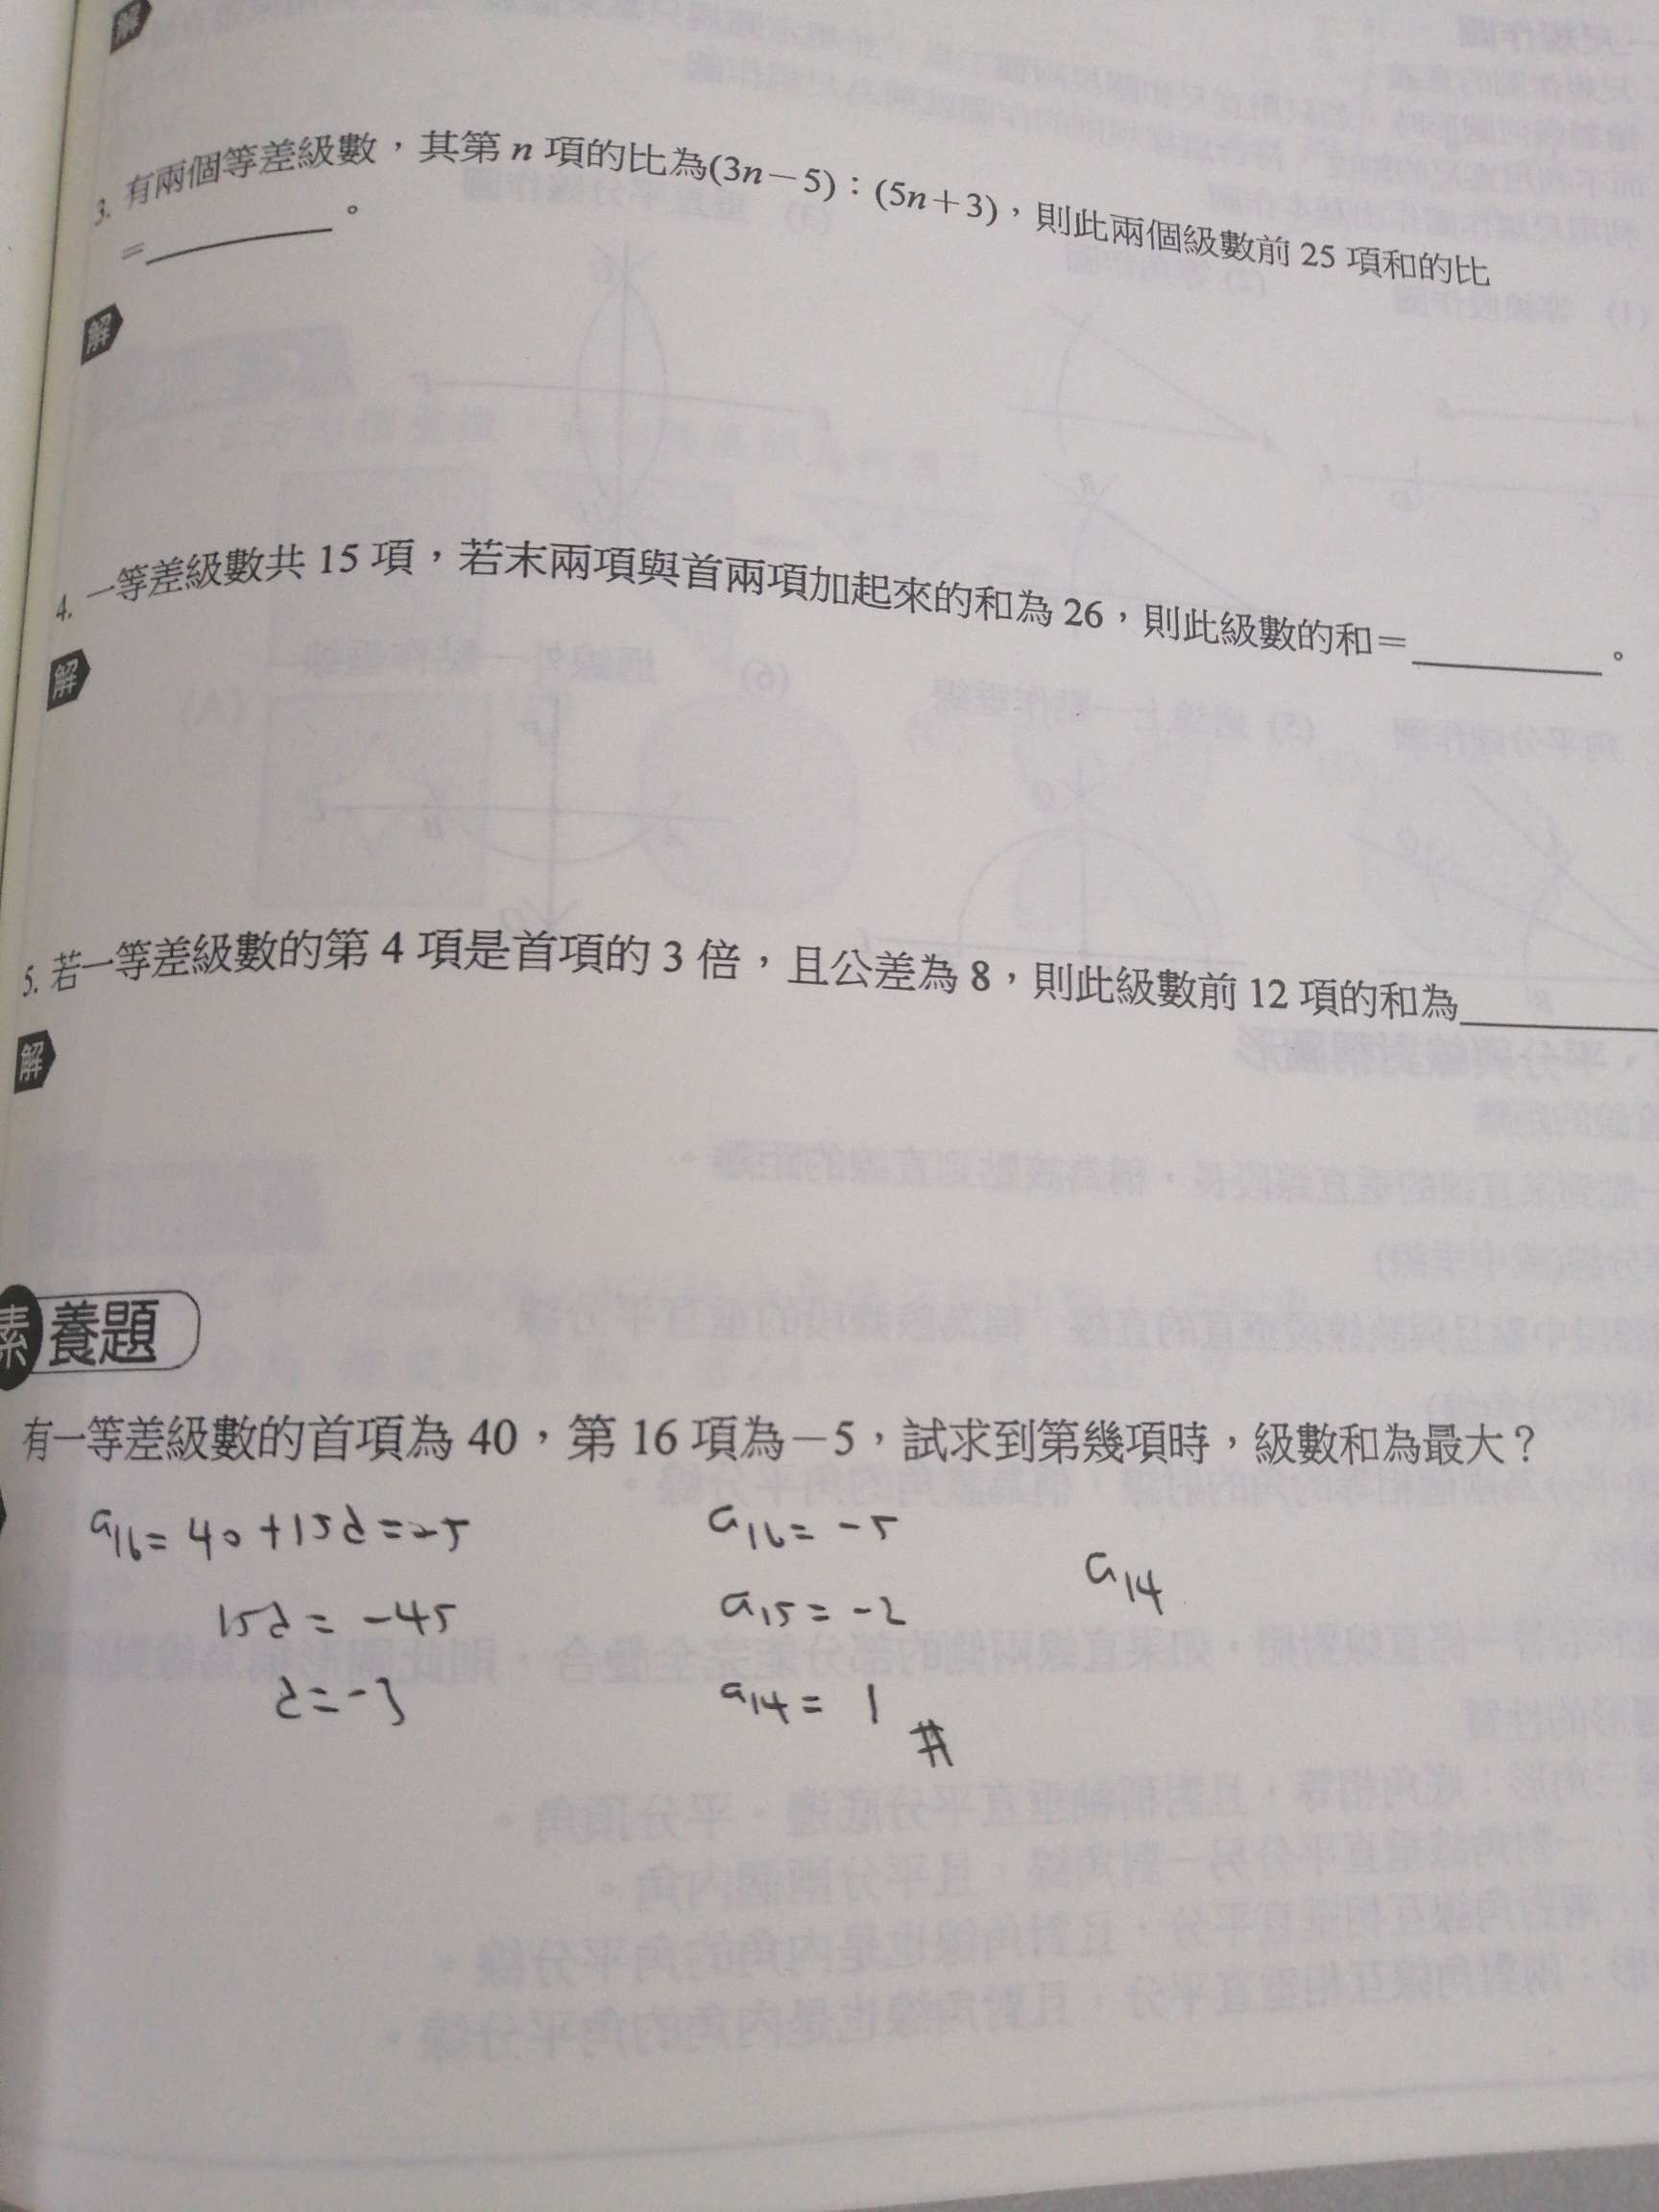 解
3. 有兩個等差級數，其第 n 項的比為(3n－5)：(5n＋3)，則此兩個級數前 25 項和的比
＝________。
解
4. 一等差級數共 15 項，若末兩項與首兩項加起來的和為 26，則此級數的和＝________。
解
5. 若一等差級數的第 4 項是首項的 3 倍，且公差為 8，則此級數前 12 項的和為________
解
素養題
有一等差級數的首項為 40，第 16 項為－5，試求到第幾項時，級數和為最大？
a16 = 40 + 15d = -5
15d = -45
d = -3
a16 = -5
a15 = -2
a14 = 1 #
a14